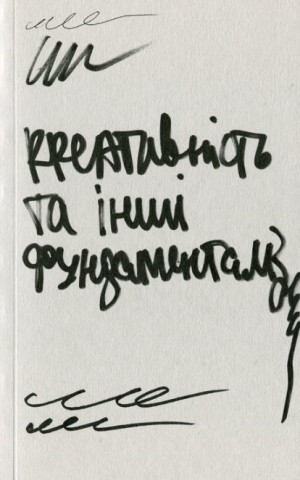 креативність
та інші
фундаменталізми